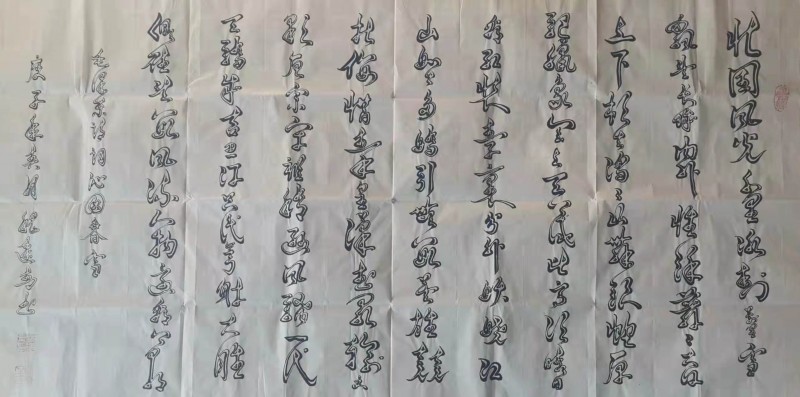 北國风光千里冰封万里雪
飘望长城内外惟余莽莽大河
上下顿失滔滔山舞银蛇原
驰蜡象欲与天公试比高须晴日
看红装素裹分外妖娆江
山如此多娇引无数英雄竞
折腰惜秦皇汉武略输文
彩唐宗宋祖稍逊风骚一代
天骄成吉思汗只识弯弓射大雕
俱往矣数风流人物还看今朝
毛泽东诗词沁园春雪
庚子年 月